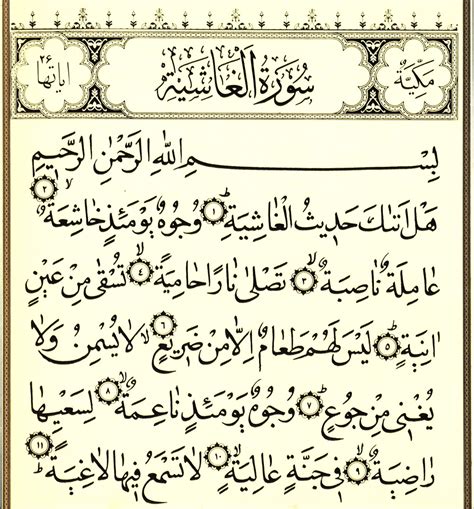 مَكِّيَّةٌ سُورَةُ الْغَاشِيَةِ اٰيَاتُهَا ٢٦
بِسْمِ اللهِ الرَّحْمٰنِ الرَّحِيمِ
هَلْ اَتٰيكَ حَدِيثُ الْغَاشِيَةِؕ ﴿١﴾ وُجُوهٌ يَوْمَئِذٍ خَاشِعَةٌۙ ﴿٢﴾
عَامِلَةٌ نَاصِبَةٌۙ ﴿٣﴾ تَصْلٰى نَارًا حَامِيَةًۙ ﴿٤﴾ تُسْقٰى مِنْ عَيْنٍ
اٰنِيَةٍؕ ﴿٥﴾ لَيْسَ لَهُمْ طَعَامٌ اِلَّا مِنْ ضَرِيعٍۙ ﴿٦﴾ لَا يُسْمِنُ وَلَا
يُغْنِي مِنْ جُوعٍؕ ﴿٧﴾ وُجُوهٌ يَوْمَئِذٍ نَاعِمَةٌۙ ﴿٨﴾ لِسَعْيِهَا
رَاضِيَةٌۙ ﴿٩﴾ فِي جَنَّةٍ عَالِيَةٍۙ ﴿١٠﴾ لَا تَسْمَعُ فِيهَا لَاغِيَةًؕ ﴿١١﴾